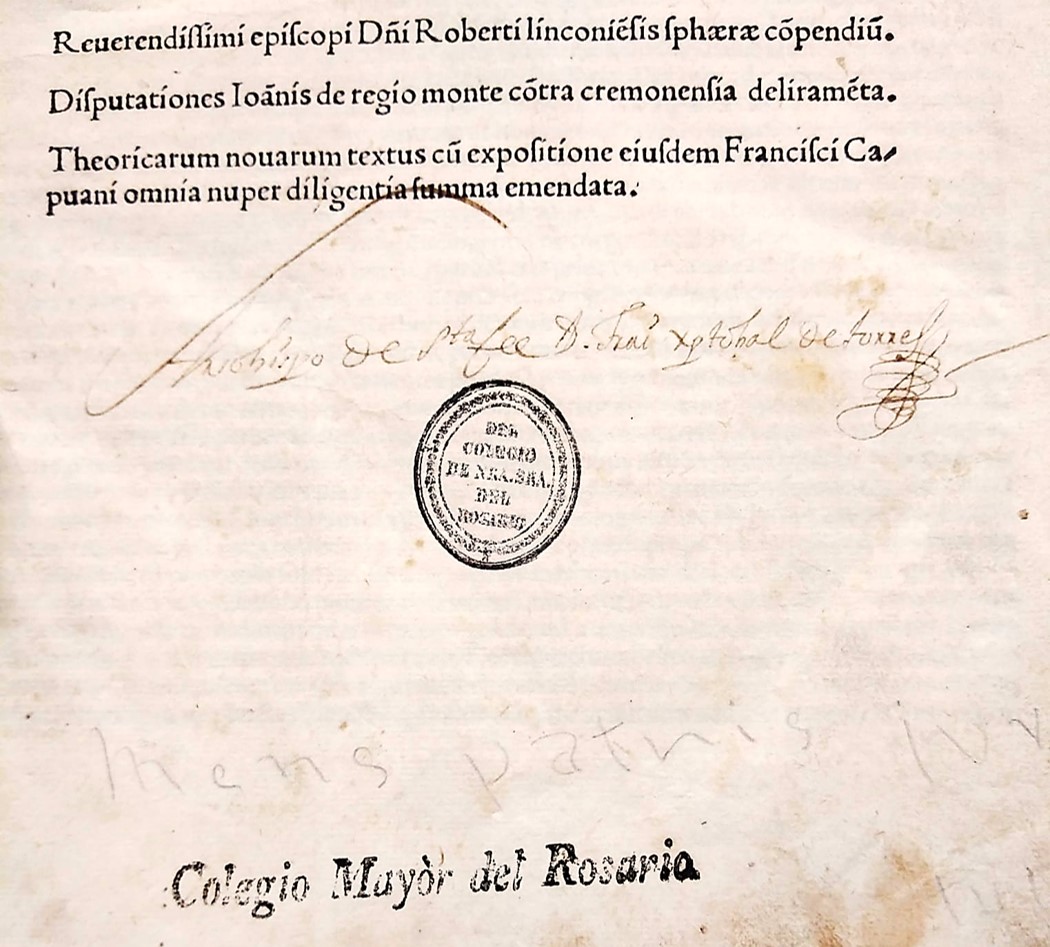 Reuerendiſſimi epiſcopi Dn̄i Roberti linconiēſis ſphæræ cōpendiū.
Diſputationes Ioānis de regio monte cōtra cremonenſia deliramēta.
Theoricarum nouarum textus cū expoſitione eiuſdem Franciſci Ca⸗
puani omnia nuper diligentia ſumma emendata.
Arzobispo de Sta fee D. Frai xptobal de torres
DEL
COLEGIO
DE NRA. SRA.
DEL
ROSARIO
Mens patris
Colegio Mayòr del Rosario